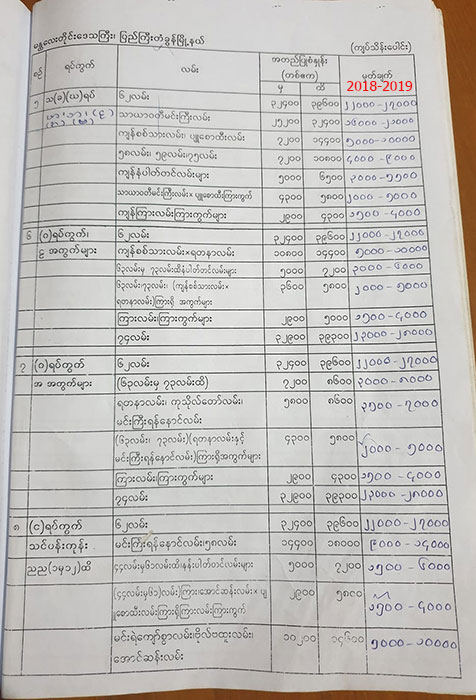 မန္တလေးတိုင်းဒေသကြီး၊ ပြည်ကြီးတံခွန်မြို့နယ်
(ကျပ်သိန်းပေါင်း)
စဉ် ရပ်ကွက် လမ်း အတည်ပြုစံနှုန်း (တစ်ဧက) မှ ထိ မှတ်ချက်
2018-2019
၅ သ(ခ)(ယ)ရပ် ၆၂လမ်း ၃၂၄၀၀ ၃၉၆၀၀ ၂၂၀၀၀-၂၇၀၀၀
သာယာဝတီမင်းကြီးလမ်း ၂၅၂၀၀ ၃၂၄၀၀ ၁၆၀၀၀-၂၁၀၀၀
ကျန်စစ်သားလမ်း၊ ပျူစောထီးလမ်း ၇၂၀၀ ၁၄၄၀၀ ၅၀၀၀-၁၀၀၀၀
၅၈လမ်း၊ ၅၉လမ်း၊၇၅လမ်း ၇၂၀၀ ၁၀၈၀၀ ၄၀၀၀-၉၀၀၀
ကျန်နံပါတ်တင်လမ်းများ ၅၀၀၀ ၆၅၀၀ ၃၀၀၀-၅၅၀၀
သာယာဝတီမင်းကြီးလမ်း×ပျူစောထီးကြားကွက် ၄၃၀၀ ၅၈၀၀ ၂၀၀၀-၅၀၀၀
ကျန်ကြားလမ်းကြားကွက်များ ၂၉၀၀ ၄၃၀၀ ၁၅၀၀-၄၀၀၀
၆ (ဝ)ရပ်ကွက်၊ ၆၂လမ်း ၃၂၄၀၀ ၃၉၆၀၀ ၂၂၀၀၀-၂၇၀၀၀
ဠ အကွက်များ ကျန်စစ်သားလမ်း×ရတနာလမ်း ၁၀၈၀၀ ၁၄၄၀၀ ၅၀၀၀-၁၀၀၀၀
၆၃လမ်းမှ ၇၃လမ်းထိနံပါတ်တင်လမ်းများ ၅၀၀၀ ၇၂၀၀ ၃၀၀၀-၆၀၀၀
၆၃လမ်း၊၇၃လမ်း၊ (ကျန်စစ်သားလမ်း× ၃၆၀၀ ၅၈၀၀ ၂၀၀၀-၅၀၀၀
ရတနာလမ်း)ကြားရှိ အကွက်များ
ကြားလမ်း၊ကြားကွက်များ ၂၉၀၀ ၅၀၀၀ ၁၅၀၀-၄၀၀၀
၇၄လမ်း ၃၂၉၀၀ ၃၉၃၀၀ ၂၃၀၀၀-၂၈၀၀၀
၇ (ဝ)ရပ်ကွက် ၆၂လမ်း ၃၂၄၀၀ ၃၉၆၀၀ ၂၂၀၀၀-၂၇၀၀၀
အ အကွက်များ (၆၃လမ်းမှ ၇၃လမ်းထိ) ၇၂၀၀ ၈၆၀၀ ၃၀၀၀-၈၀၀၀
ရတနာလမ်း၊ ကုသိုလ်တော်လမ်း၊ ၅၈၀၀ ၈၆၀၀ ၃၅၀၀-၇၀၀၀
မင်းကြီးရန်နောင်လမ်း
(၆၃လမ်း၊ ၇၃လမ်း)(ရတနာလမ်းနှင့် ၄၃၀၀ ၅၈၀၀ ၂၀၀၀-၅၀၀၀
မင်းကြီးရန်နောင်လမ်း)ကြားရှိအကွက်များ
ကြားလမ်း၊ကြားကွက်များ ၂၉၀၀ ၄၃၀၀ ၁၅၀၀-၄၀၀၀
၇၄လမ်း ၃၂၉၀၀ ၃၉၃၀၀ ၂၃၀၀၀-၂၈၀၀၀
၈ (င)ရပ်ကွက် ၆၂လမ်း ၃၂၄၀၀ ၃၉၆၀၀ ၂၂၀၀၀-၂၇၀၀၀
သင်ပန်းကုန်း မင်းကြီးရန်နောင်လမ်း၊၅၈လမ်း ၁၄၄၀၀ ၁၈၀၀၀ ၉၀၀၀-၁၄၀၀၀
ညည(၁မှ၁၂)ထိ ၄၄လမ်းမှ၆၁လမ်းထိနံပါတ်တင်လမ်းများ ၅၀၀၀ ၇၂၀၀ ၁၅၀၀-၆၀၀၀
(၄၄လမ်းမှ၆၁)လမ်း)ကြား၊အောင်ဆန်းလမ်း×ပျူ ၂၉၀၀ ၅၈၀၀ ၁၅၀၀-၄၀၀၀
စောထီးလမ်းကြားရှိကြားလမ်းကြားကွက်
မင်းရဲကျော်စွာလမ်း၊ဗိုလ်ဗထူးလမ်း၊ ၁၀၂၀၀ ၁၄၆၀၀ ၅၀၀၀-၁၀၀၀၀
အောင်ဆန်းလမ်း